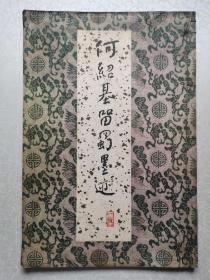 何绍基留蜀墨迹